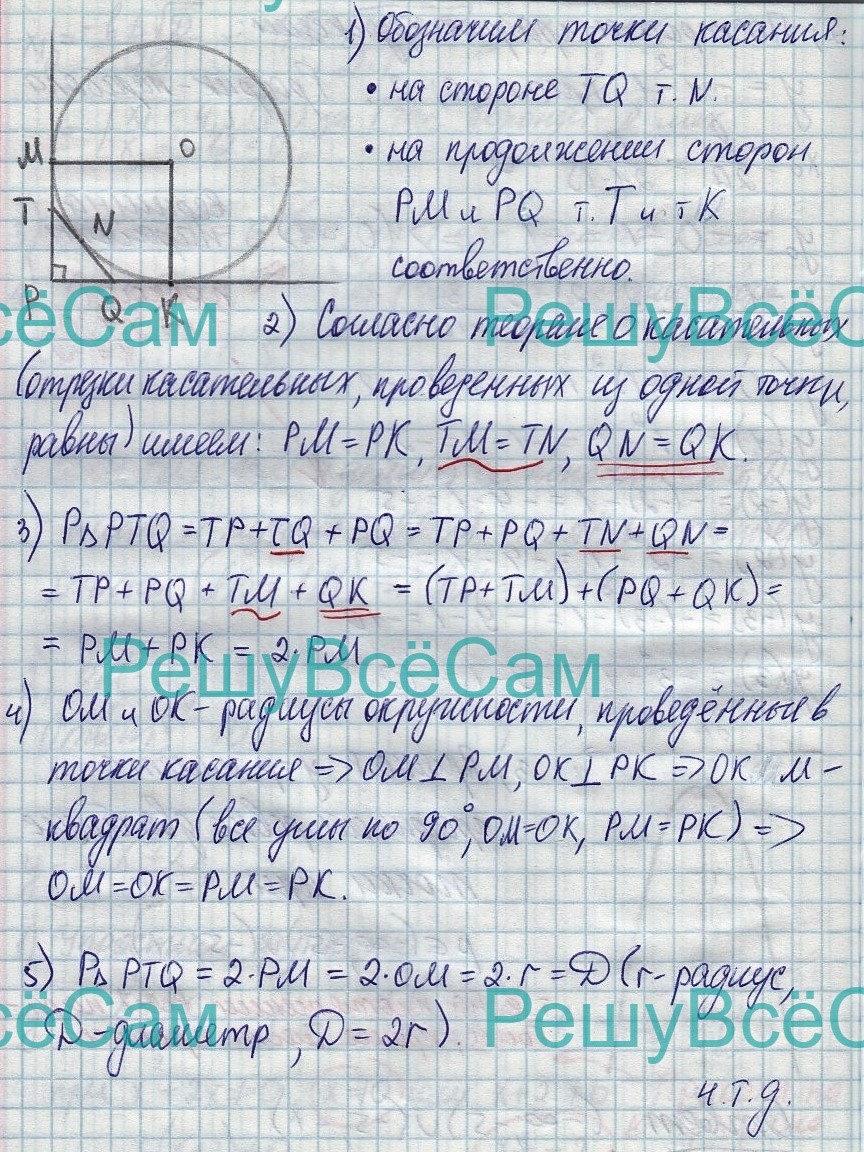 1) Обозначим точки касания:
• на стороне TQ т. N.
• на продолжении сторон
PM и PQ т. T и т K
соответственно.
M O
T N
P Q K
2) Согласно теореме о касательных
(отрезки касательных, проведенных из одной точки,
равны) имеем: PM = PK, TM = TN, QN = QK.
3) P∆ PTQ = TP + TQ + PQ = TP + PQ + TN + QN =
= TP + PQ + TM + QK = (TP + TM) + (PQ + QK) =
= PM + PK = 2·PM
4) OM и OK - радиусы окружности, проведённые в
точки касания => OM ⊥ PM, OK ⊥ PK => OK M -
квадрат (все углы по 90°, OM=OK, PM=PK) =>
OM = OK = PM = PK.
5) P∆ PTQ = 2·PM = 2·OM = 2·r = D (r - радиус,
D - диаметр, D = 2r).
ч.т.д.
ёСам
РешуВсёС
РешуВсёСам
ёСам
РешуВсёС